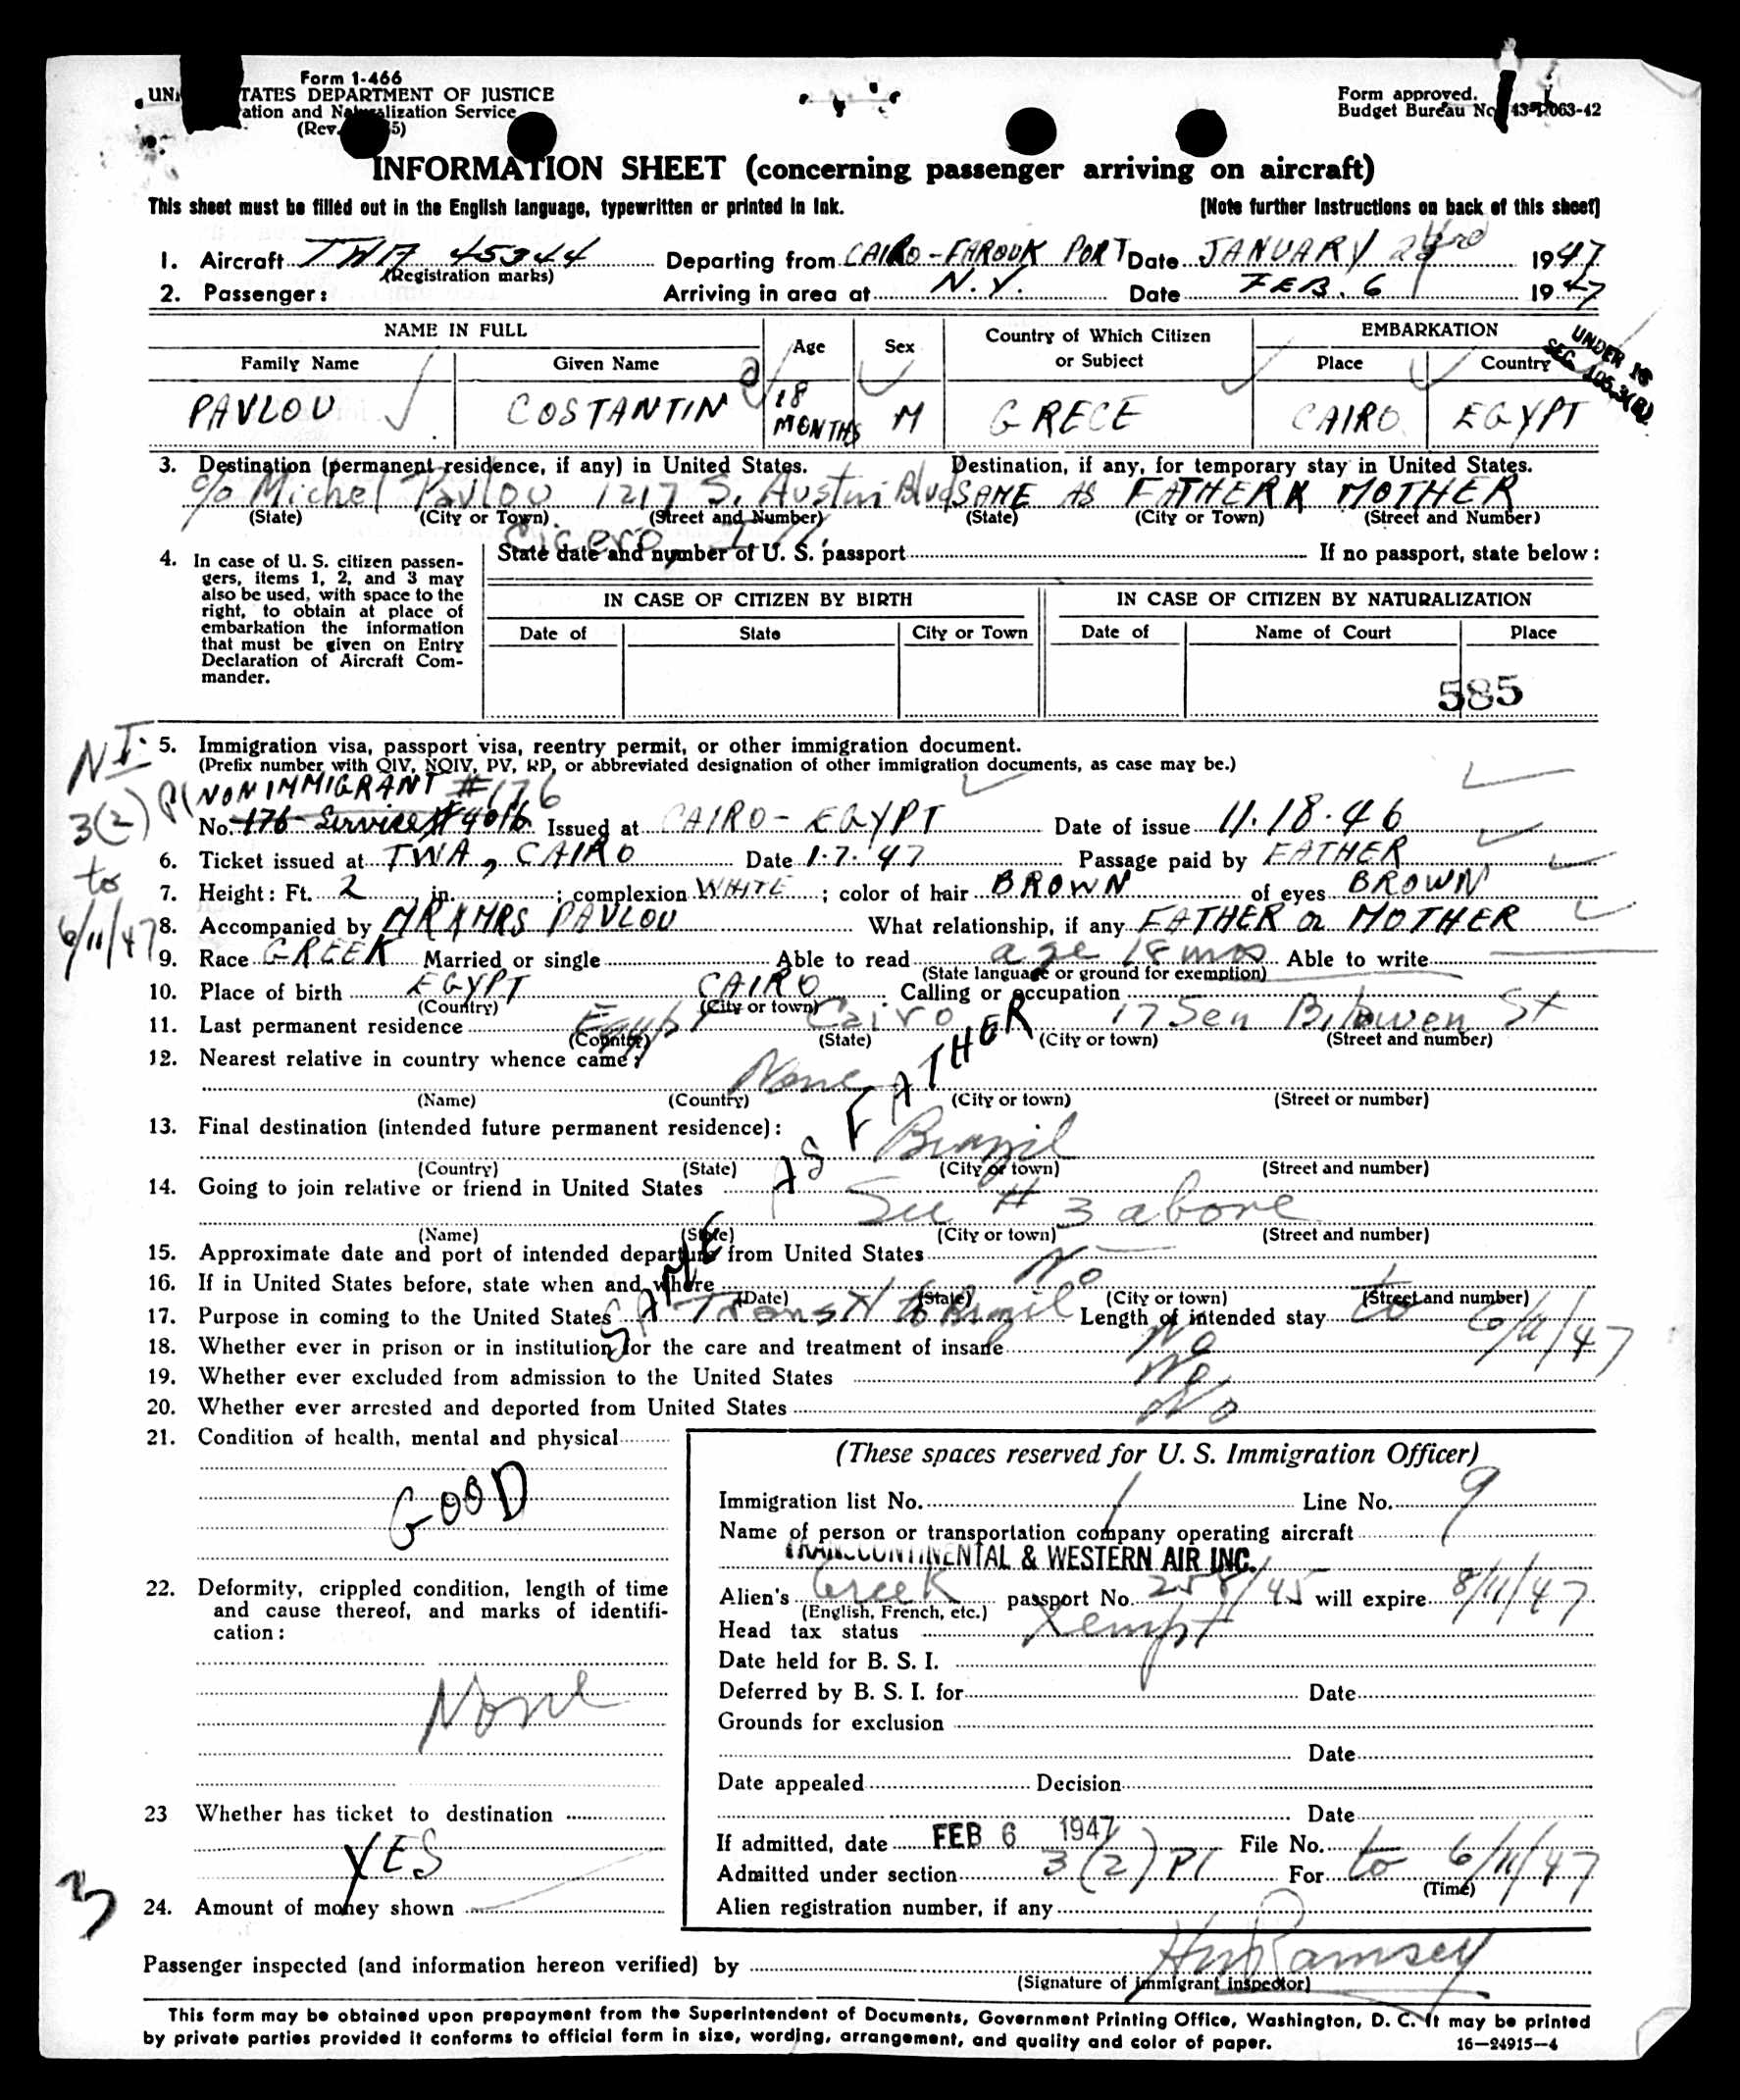 Form 1-466
TATES DEPARTMENT OF JUSTICE
Form approved.
Budget Bureau No. 43-R063-42
INFORMATION SHEET (concerning passenger arriving on aircraft)
This sheet must be filled out in the English language, typewritten or printed in ink. [Note further instructions on back of this sheet]
1. Aircraft TWA 45344 Departing from CAIRO-FAROUK PORT Date JANUARY 1947
(Registration marks)
2. Passenger: Arriving in area at N.Y. Date FEB. 6 1947
NAME IN FULL Age Sex Country of Which Citizen or Subject EMBARKATION
Family Name Given Name Place Country
UNDER 16
SEC. 105.3(B)
PAVLOU COSTANTIN 18 MONTHS M GRECE CAIRO EGYPT
3. Destination (permanent residence, if any) in United States. Destination, if any, for temporary stay in United States.
c/o Michel Pavlou 1217 S. Austin Blvd SAME AS FATHER & MOTHER
(State) (City or Town) (Street and Number) (State) (City or Town) (Street and Number)
Cicero Ill.
4. In case of U. S. citizen passengers, items 1, 2, and 3 may also be used, with space to the right, to obtain at place of embarkation the information that must be given on Entry Declaration of Aircraft Commander.
State date and number of U. S. passport If no passport, state below:
IN CASE OF CITIZEN BY BIRTH IN CASE OF CITIZEN BY NATURALIZATION
Date of State City or Town Date of Name of Court Place
585
NI
3(2) P1
to
6/11/47
5. Immigration visa, passport visa, reentry permit, or other immigration document.
(Prefix number with QIV, NQIV, PV, RP, or abbreviated designation of other immigration documents, as case may be.)
NONIMMIGRANT #176
No. 176 Service # 4016 Issued at CAIRO-EGYPT Date of issue 11.18.46
6. Ticket issued at TWA, CAIRO Date 1.7.47 Passage paid by FATHER
7. Height: Ft. 2 in. ; complexion WHITE ; color of hair BROWN of eyes BROWN
8. Accompanied by MR & MRS PAVLOU What relationship, if any FATHER a MOTHER
9. Race GREEK Married or single Able to read age 18 mos Able to write
(State language or ground for exemption)
10. Place of birth EGYPT CAIRO Calling or occupation
(Country) (City or town)
11. Last permanent residence Egypt Cairo 17 Sen St
(Country) (State) (City or town) (Street and number)
12. Nearest relative in country whence came:
None
(Name) (Country) (City or town) (Street or number)
13. Final destination (intended future permanent residence):
Brazil
(Country) (State) (City or town) (Street and number)
14. Going to join relative or friend in United States
See # 3 above
(Name) (State) (City or town) (Street and number)
SAME AS FATHER
15. Approximate date and port of intended departure from United States
16. If in United States before, state when and where No
(Date) (State) (City or town) (Street and number)
17. Purpose in coming to the United States Transit to Brazil Length of intended stay to 6/11/47
18. Whether ever in prison or in institution for the care and treatment of insane No
19. Whether ever excluded from admission to the United States No
20. Whether ever arrested and deported from United States No
21. Condition of health, mental and physical
GOOD
22. Deformity, crippled condition, length of time and cause thereof, and marks of identification:
None
23 Whether has ticket to destination
YES
3
24. Amount of money shown
(These spaces reserved for U. S. Immigration Officer)
Immigration list No. 1 Line No. 9
Name of person or transportation company operating aircraft
TRANSCONTINENTAL & WESTERN AIR INC.
Alien's Greek passport No. 258/45 will expire 8/11/47
(English, French, etc.)
Head tax status Xempt
Date held for B. S. I.
Deferred by B. S. I. for Date
Grounds for exclusion
Date
Date appealed Decision
Date
If admitted, date FEB 6 1947 File No.
Admitted under section 3(2) P1 For to 6/11/47
(Time)
Alien registration number, if any
Passenger inspected (and information hereon verified) by Ramsey
(Signature of immigrant inspector)
This form may be obtained upon prepayment from the Superintendent of Documents, Government Printing Office, Washington, D. C. It may be printed
by private parties provided it conforms to official form in size, wording, arrangement, and quality and color of paper. 16—24915-4